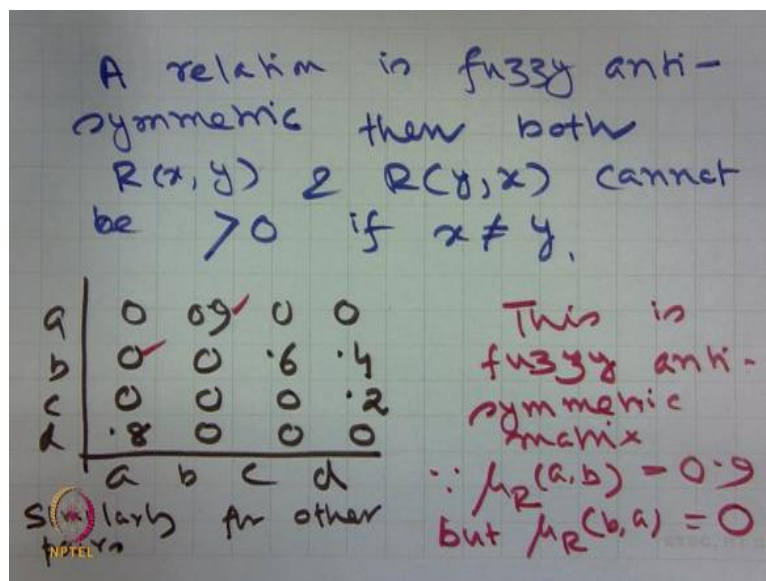 A relation is fuzzy anti-
symmetric then both
R(x, y) & R(y, x) cannot
be >0 if x ≠ y.
a 0 09✓ 0 0
b 0✓ 0 .6 .4
c 0 0 0 .2
d .8 0 0 0
a b c d
Similarly for other
pairs
This is
fuzzy anti-
symmetric
matrix
∵ μR(a,b) = 0.9
but μR(b,a) = 0
NPTEL